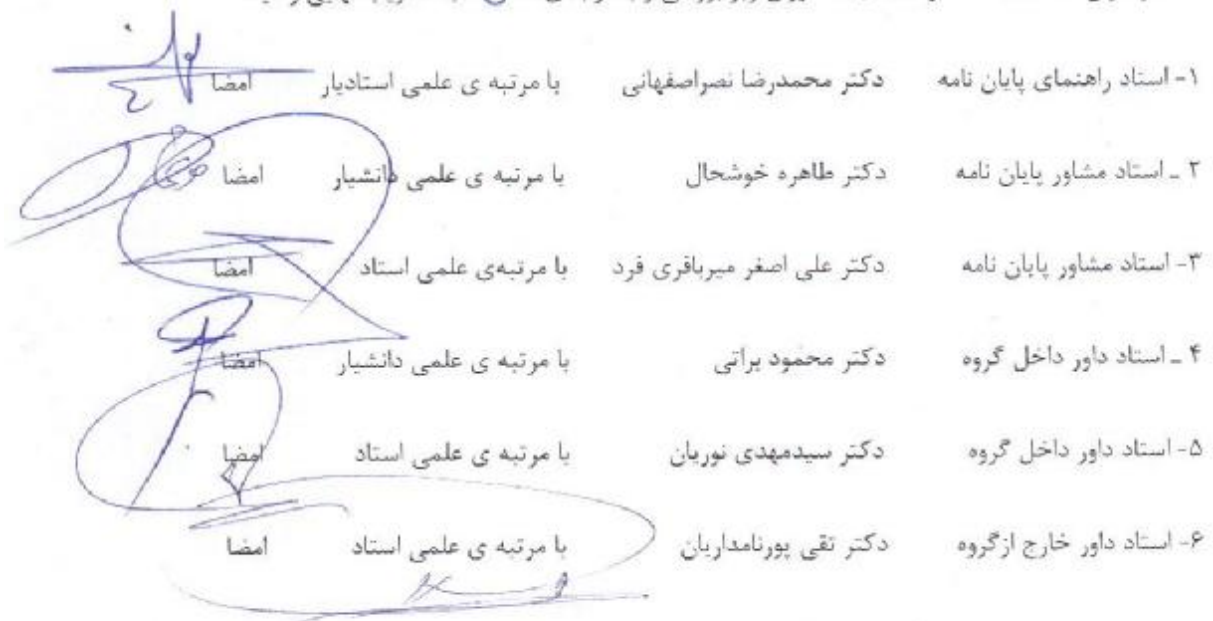 ۱- استاد راهنمای پایان نامه دکتر محمدرضا نصراصفهانی با مرتبه ی علمی استادیار امضا
۲ ـ استاد مشاور پایان نامه دکتر طاهره خوشحال با مرتبه ی علمی دانشیار امضا
۳- استاد مشاور پایان نامه دکتر علی اصغر میرباقری فرد با مرتبه‌ی علمی استاد امضا
۴ ـ استاد داور داخل گروه دکتر محمود براتی با مرتبه ی علمی دانشیار امضا
۵- استاد داور داخل گروه دکتر سیدمهدی نوریان با مرتبه ی علمی استاد امضا
۶- استاد داور خارج ازگروه دکتر تقی پورنامداریان با مرتبه ی علمی استاد امضا